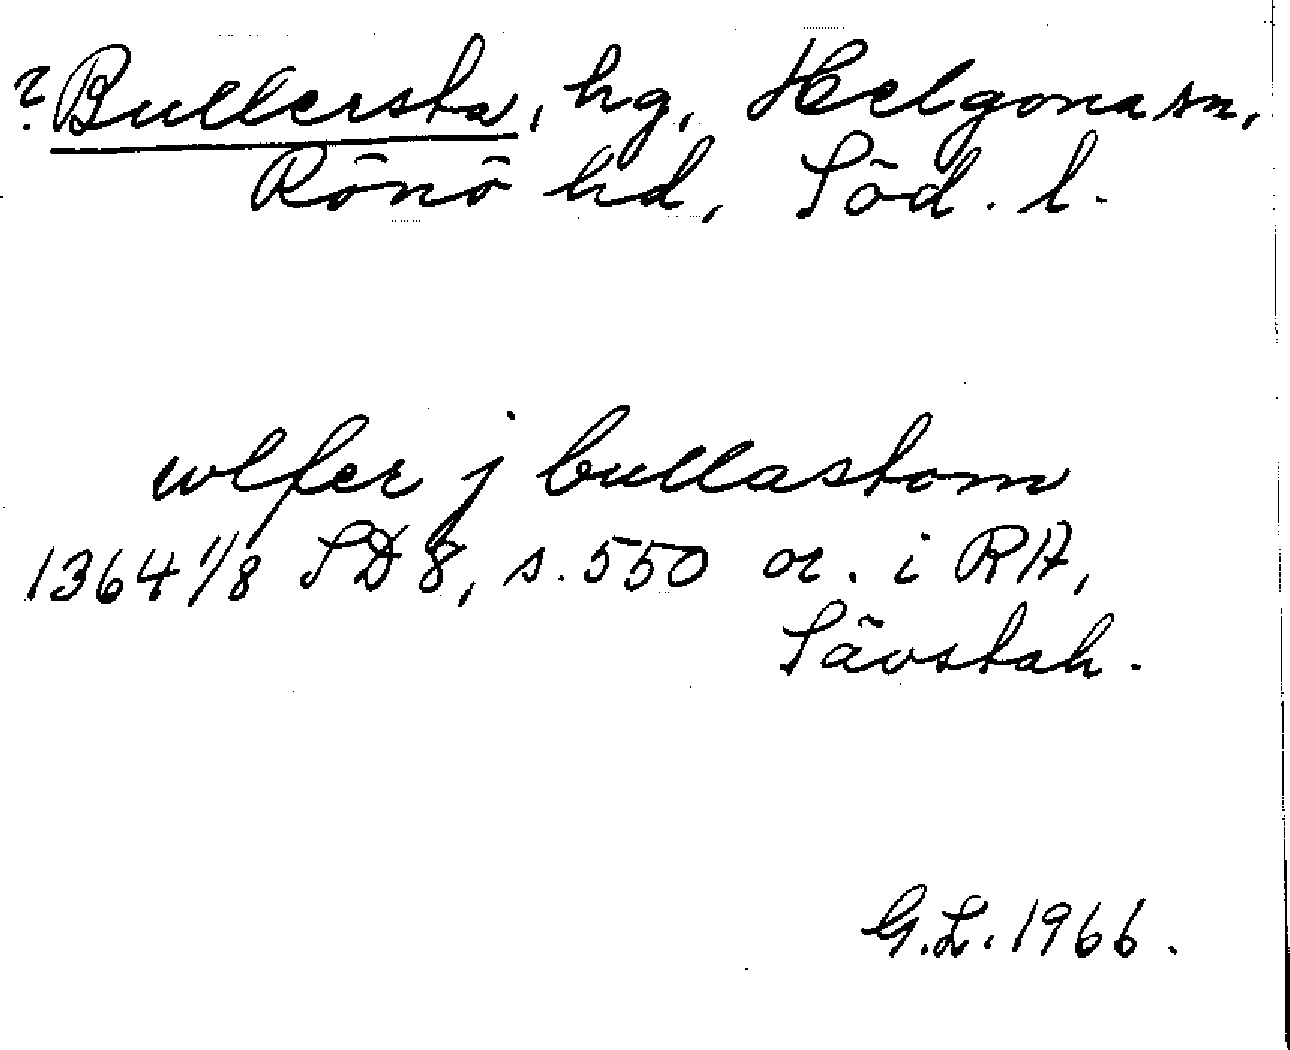 ? Bullersta, hg, Helgona sn,
Rönö hd, Söd. l.
wlfer j bullastom
1364 1/8 SD 8, s. 550 or. i RA,
Sävstah.
G.L. 1966.